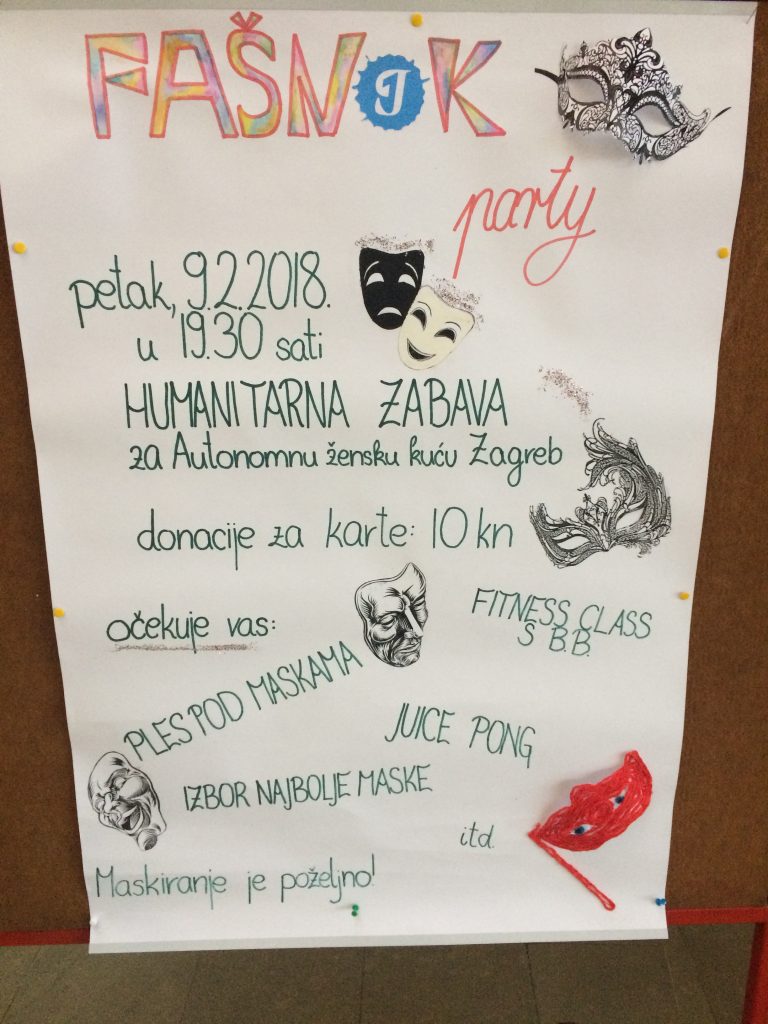 FAŠNJK
party
petak, 9.2.2018.
u 19.30 sati
HUMANITARNA ZABAVA
za Autonomnu žensku kuću Zagreb
donacije za karte: 10 kn
očekuje vas:
FITNESS CLASS
S B.B.
PLES POD MASKAMA
JUICE PONG
IZBOR NAJBOLJE MASKE
itd.
Maskiranje je poželjno!